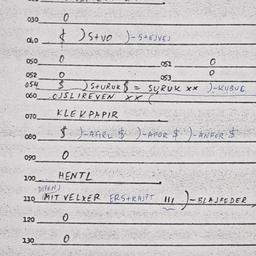 030 0
040 )S+VO )-S+EJVEJ
050 0 051 0
052 0 053 0
054 )S+URUK = SURUK xx )-KUBUE
060 OJSLIREVEN xx (
070 KLEKPAPIR
080 $ )-AFERL $ )-AFOR $ )-ANFER $
090 0
100 HENTL
110 MIT VELXER ERSTRAJFT !!! )-BLAJFEDER
120 0
130 0